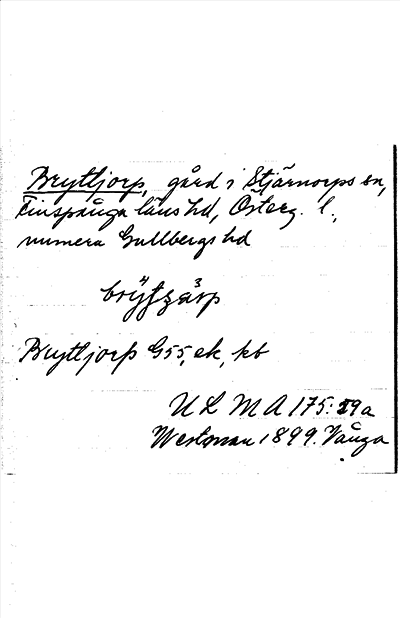 Bryttjorp, gård i Stjärnorps sn,
Finspånga läns hd, Österg. l.,
numera Gullbergs hd
Bryttjorp G55, ek, kb
U L M A 175: 59a
Westman 1899. Vånga